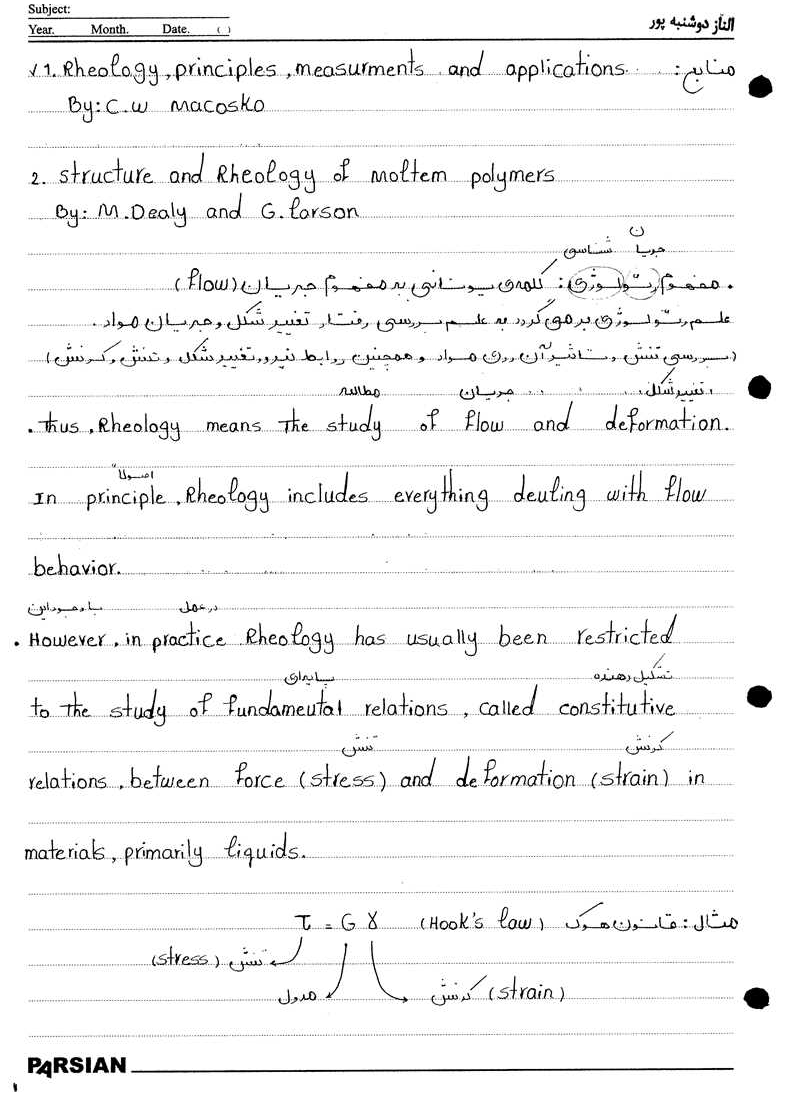 Subject:
Year. Month. Date. ( )
الناز دوشنبه پور
منابع:
√ 1. Rheology, principles, measurments and applications.
By: C.W Macosko
2. structure and Rheology of moltem polymers
By: M. Dealy and G. Larson
جریان شناسی
. مفهوم رئولوژی: کلمه‌ی یونانی به مفهوم جریان (flow)
علم رئولوژی برمی‌گردد به علم بررسی رفتار تغییر شکل و جریان مواد.
(بررسی تنش و تاثیر آن روی مواد و همچنین روابط نیرو، تغییر شکل و تنش و کرنش)
مطالعه جریان تغییر شکل
. Thus, Rheology means The study of flow and deformation.
اصولاً
In principle, Rheology includes everything deuling with flow
behavior.
با وجود این در عمل
. However, in practice Rheology has usually been restricted
پایه‌ای تشکیل دهنده
to The study of fundameutal relations, called constitutive
تنش کرنش
relations, between force (stress) and deformation (strain) in
materials, primarily liquids.
مثال: قانون هوک (Hook's law) τ = G γ
تنش (stress)
مدول کرنش (strain)
PARSIAN